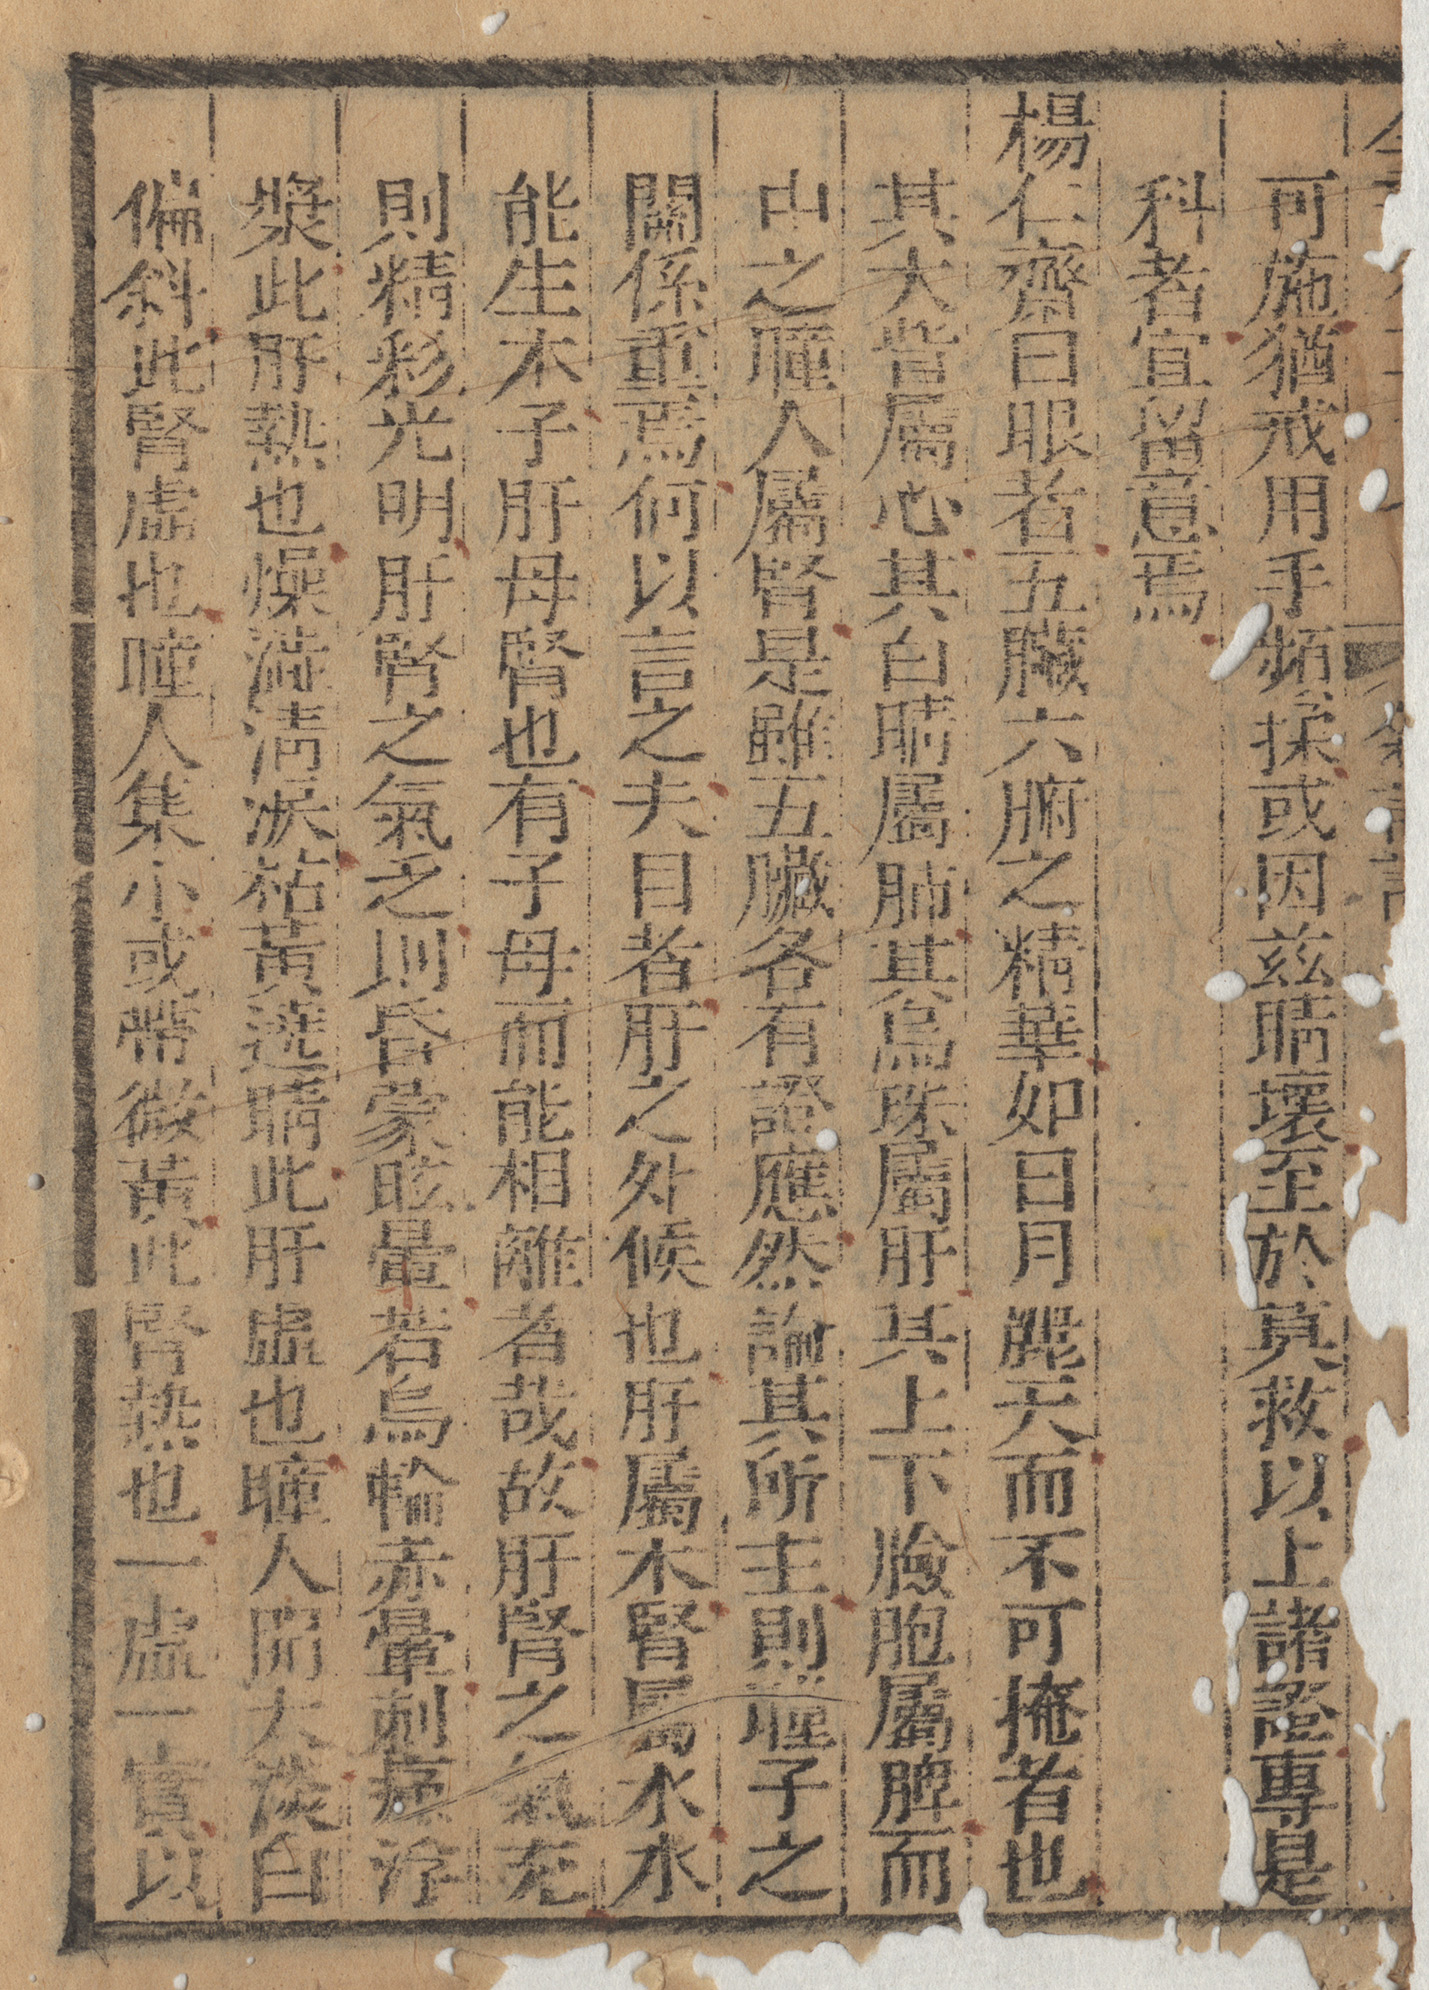 可施猶戒用手頻揉或因兹睛壞至於莫救以上諸證專是
科者宜留意焉
楊仁齋曰眼者五臟六腑之精華如日月麗天而不可掩者也
其大眥屬心其白睛屬肺其烏珠屬肝其上下臉胞屬脾而
中之瞳人屬腎是雖五臟各有證應然論其所主則瞳子之
關係重焉何以言之夫目者肝之外候也肝屬木腎屬水水
能生木子肝母腎也有子母而能相離者哉故肝腎之氣充
則精彩光明肝腎之氣乏則昏蒙眩暈若烏輪赤暈刺痛浮
漿此肝熱也燥澁清淚枯黃遶睛此肝虛也瞳人開大淡白
偏斜此腎虛也瞳人集小或帶微黃此腎熱也一虛一實以